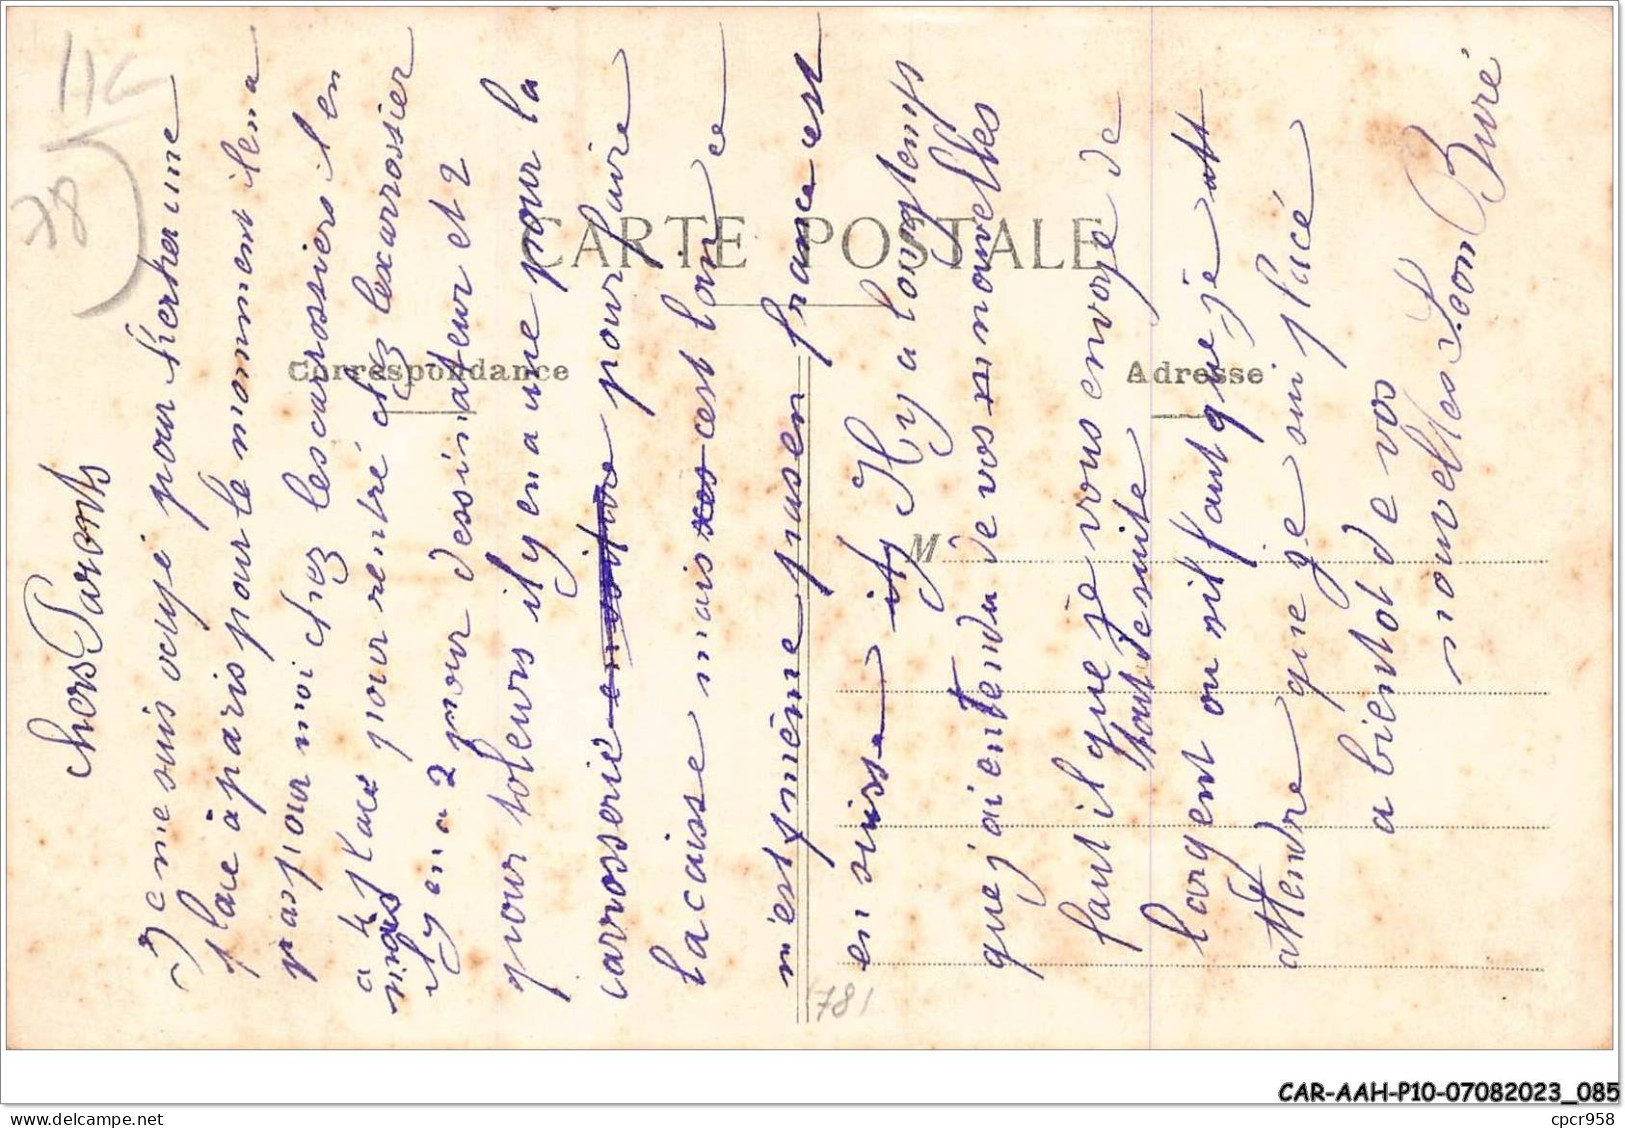 chers Parents
Je me suis ocupé pour cherher une
place à paris pour le momment il en a
pas pour moi chez les carrossiers il en
a 4 place pour rentré chez lexarrossier
sinons
il y en a 2 pour dessinateur et 2
pour toleurs il y en a une pour la
carrosserie pour faire
la caisse mais c'est loin ce
n'est même pas en france c'est
en suisse Il y a longtemps
que j'ai entendu de vos nouvelles
faut il que je vous envoye de
l'argent ou s'il faut que je
tout de suite
attendre que je suis placé
a bientot de vos
nouvelles Leon Buré
CARTE POSTALE
Correspondance
Adresse
M
HC
78
781
CAR-AAH-P10-07082023_085
cpcr958